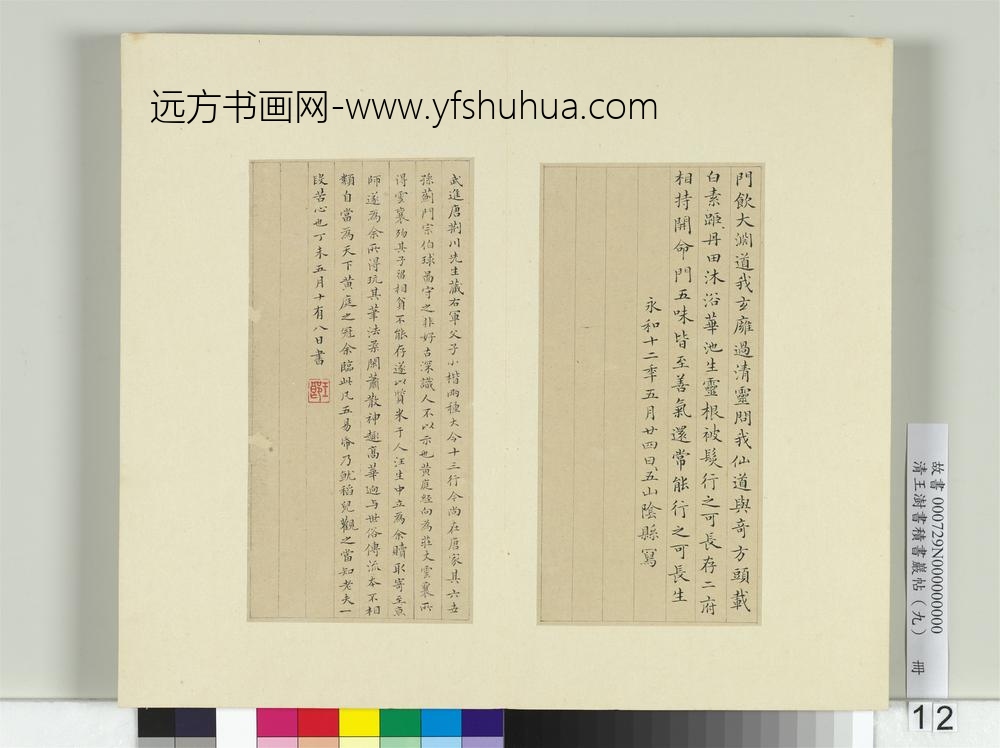 远方书画网-www.yfshuhua.com
門飲大淵道我玄廱過清靈問我仙道與奇方頭載
白素距丹田沐浴華池生靈根被髮行之可長存二府
相持開命門五味皆至善氣還常能行之可長生
永和十二年五月廿四日五山陰縣寫
武進唐荆川先生藏右軍父子小楷兩種大令十三行今尚在唐家其六世
孫薊門宗伯球啚守之非好古深識人不以示也黄庭經向為莊丈雲襄所
得雲襄歿其子孫相貧不能存遂以質米于人汪生中立為余贖取寄至京
師遂為余所得玩其筆法柔閑蕭散神趣高華迥与世俗傳流本不相
類自當為天下黄庭之冠余臨此凡五易帋乃就稻兒觀之當知老夫一
段苦心也丁未五月十有八日書
故書 000729N000000000
清王澍書積書巖帖（九） 冊
12